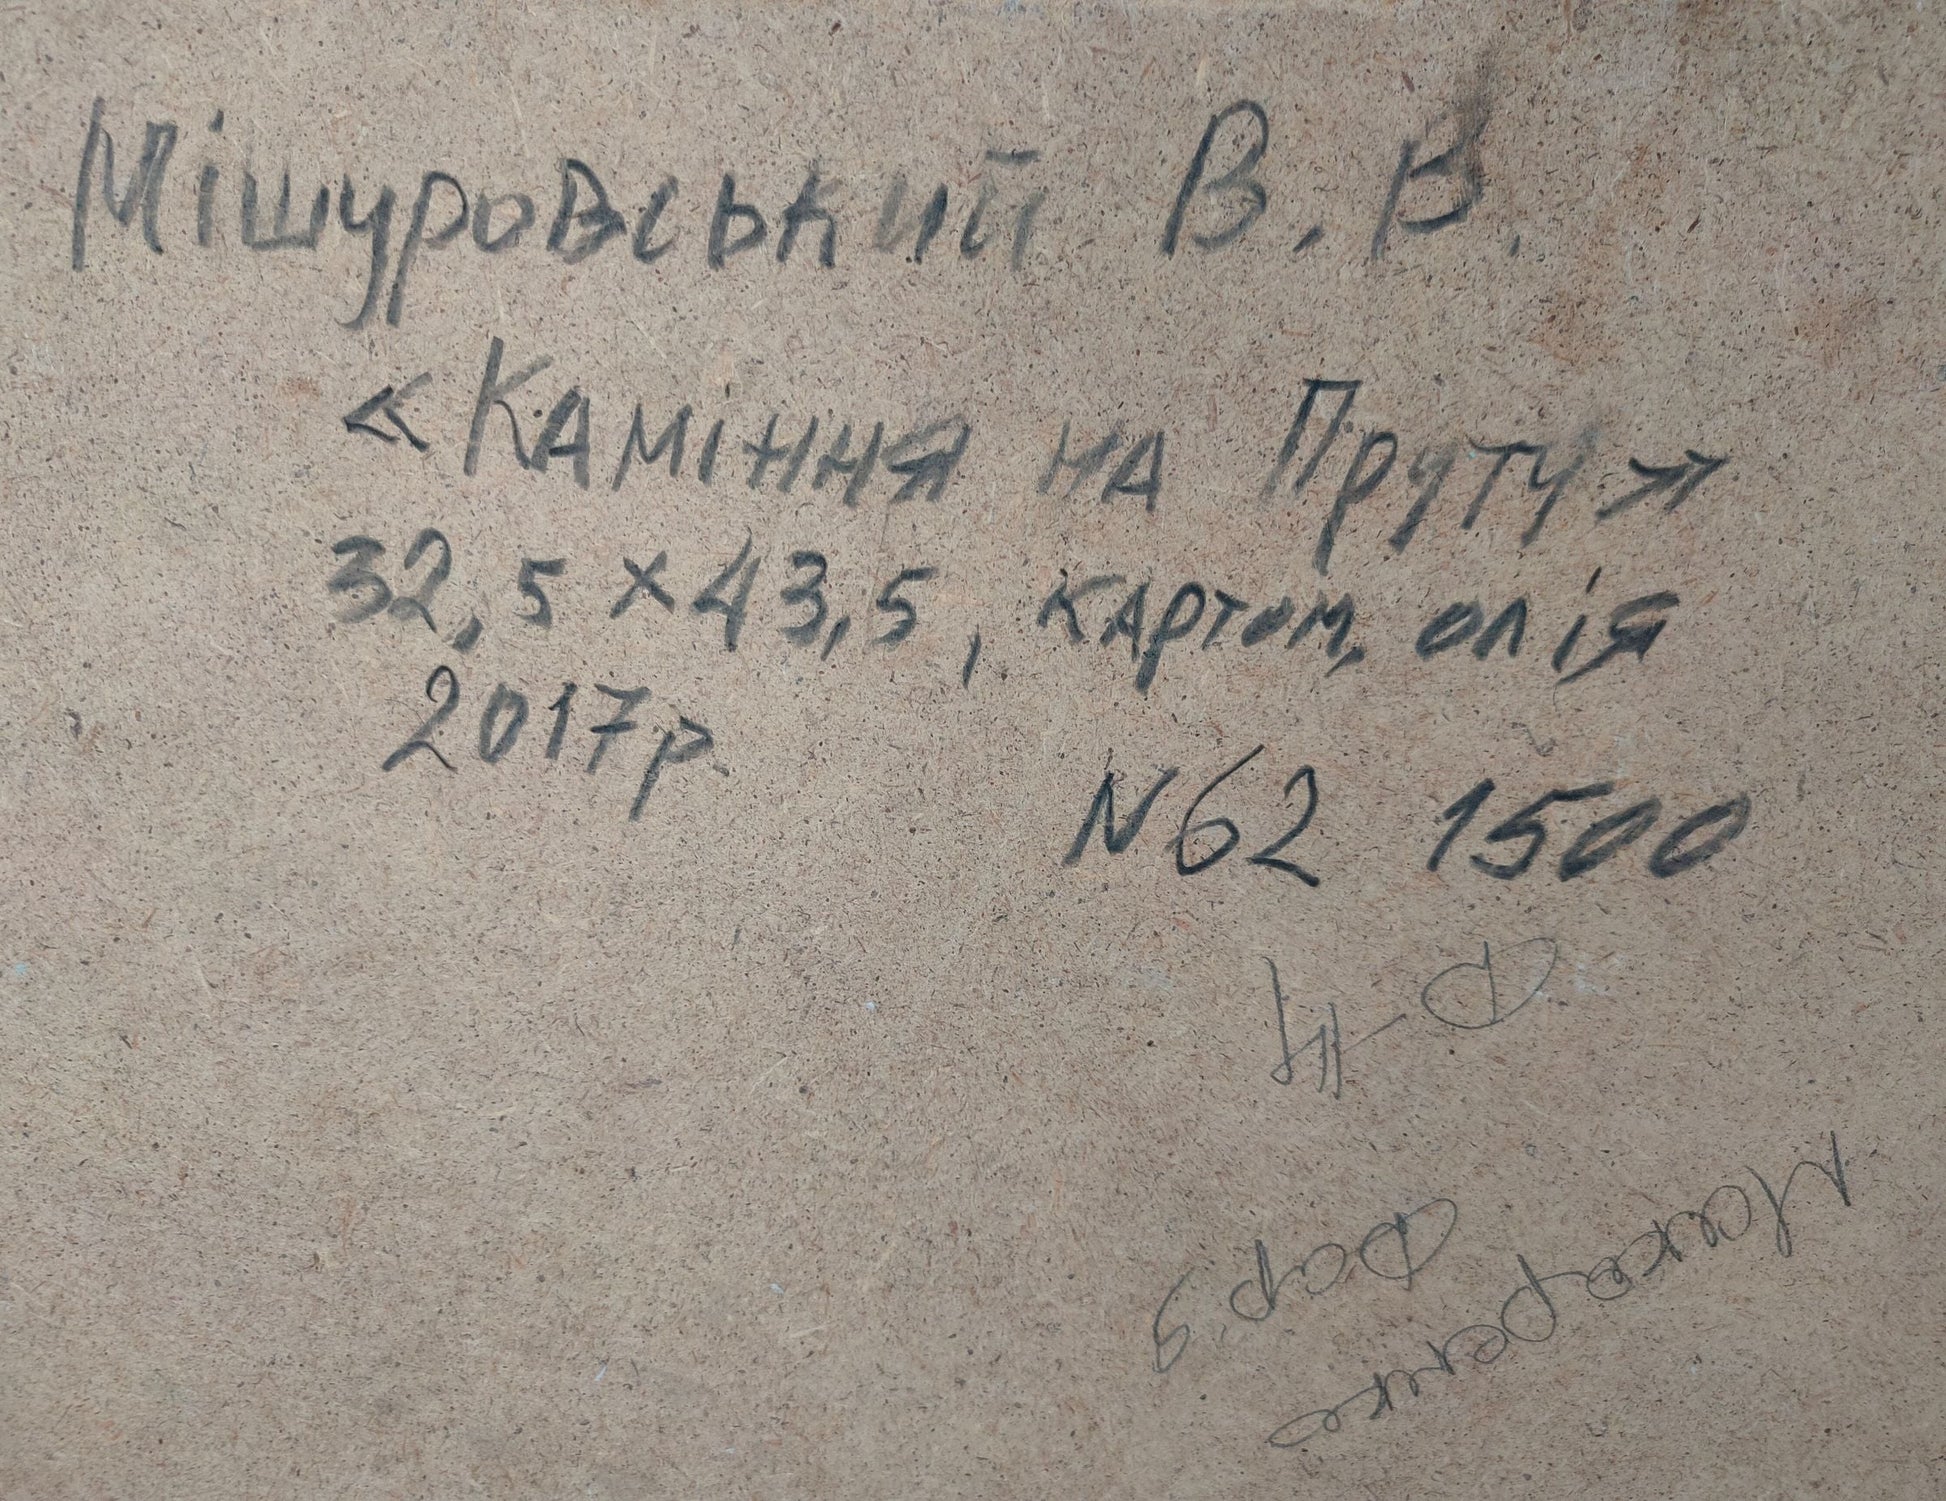 Мішуровський В. В.
«Каміння на Пруту»
32,5 × 43,5, картон, олія
2017р.
N62 1500